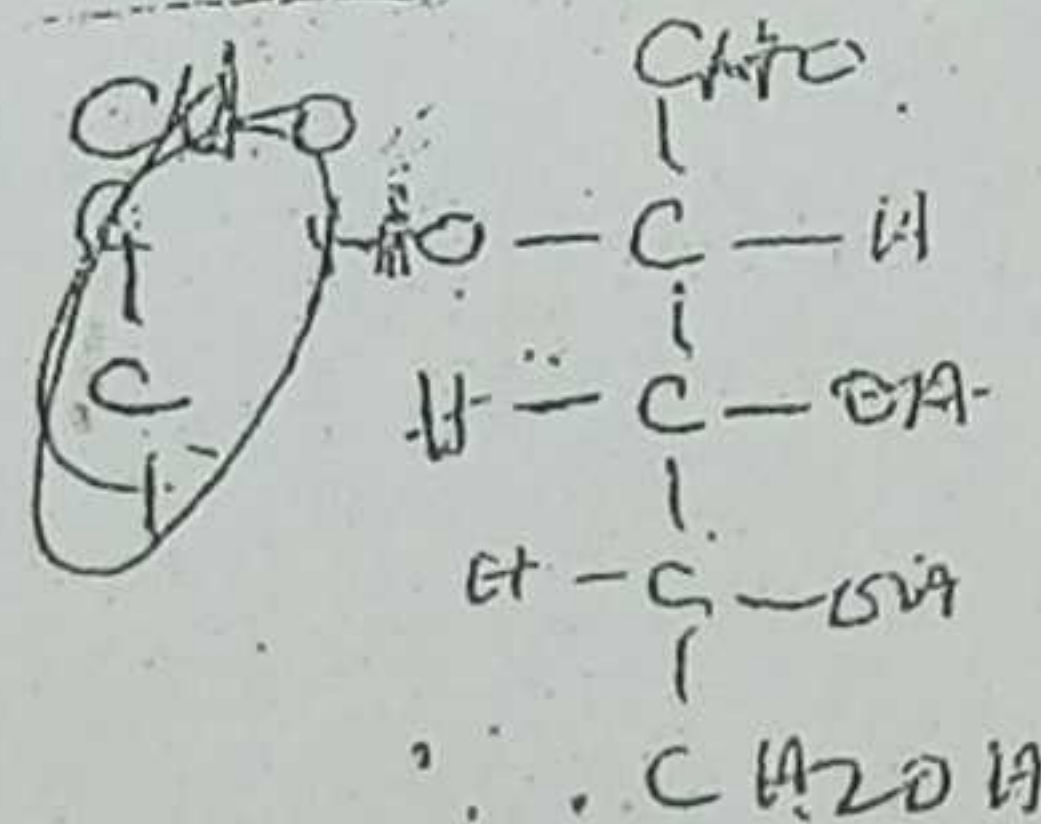 CHO
HO — C — H
H — C — OH
H — C — OH
CH2OH